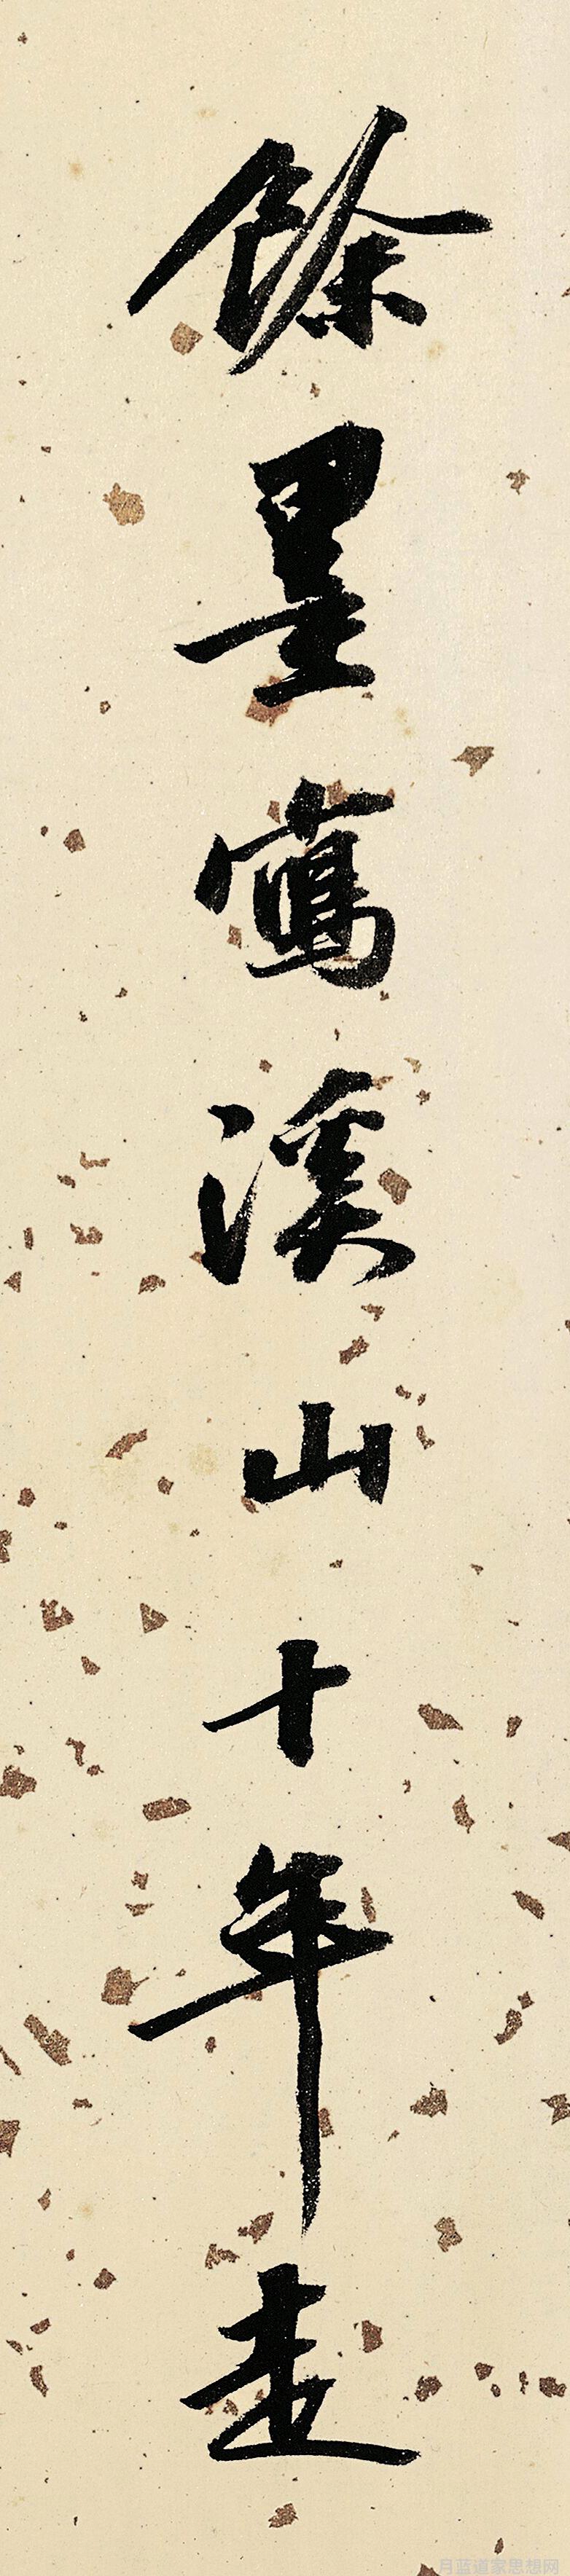 餘墨寫溪山十年走
月蓝道家思想网